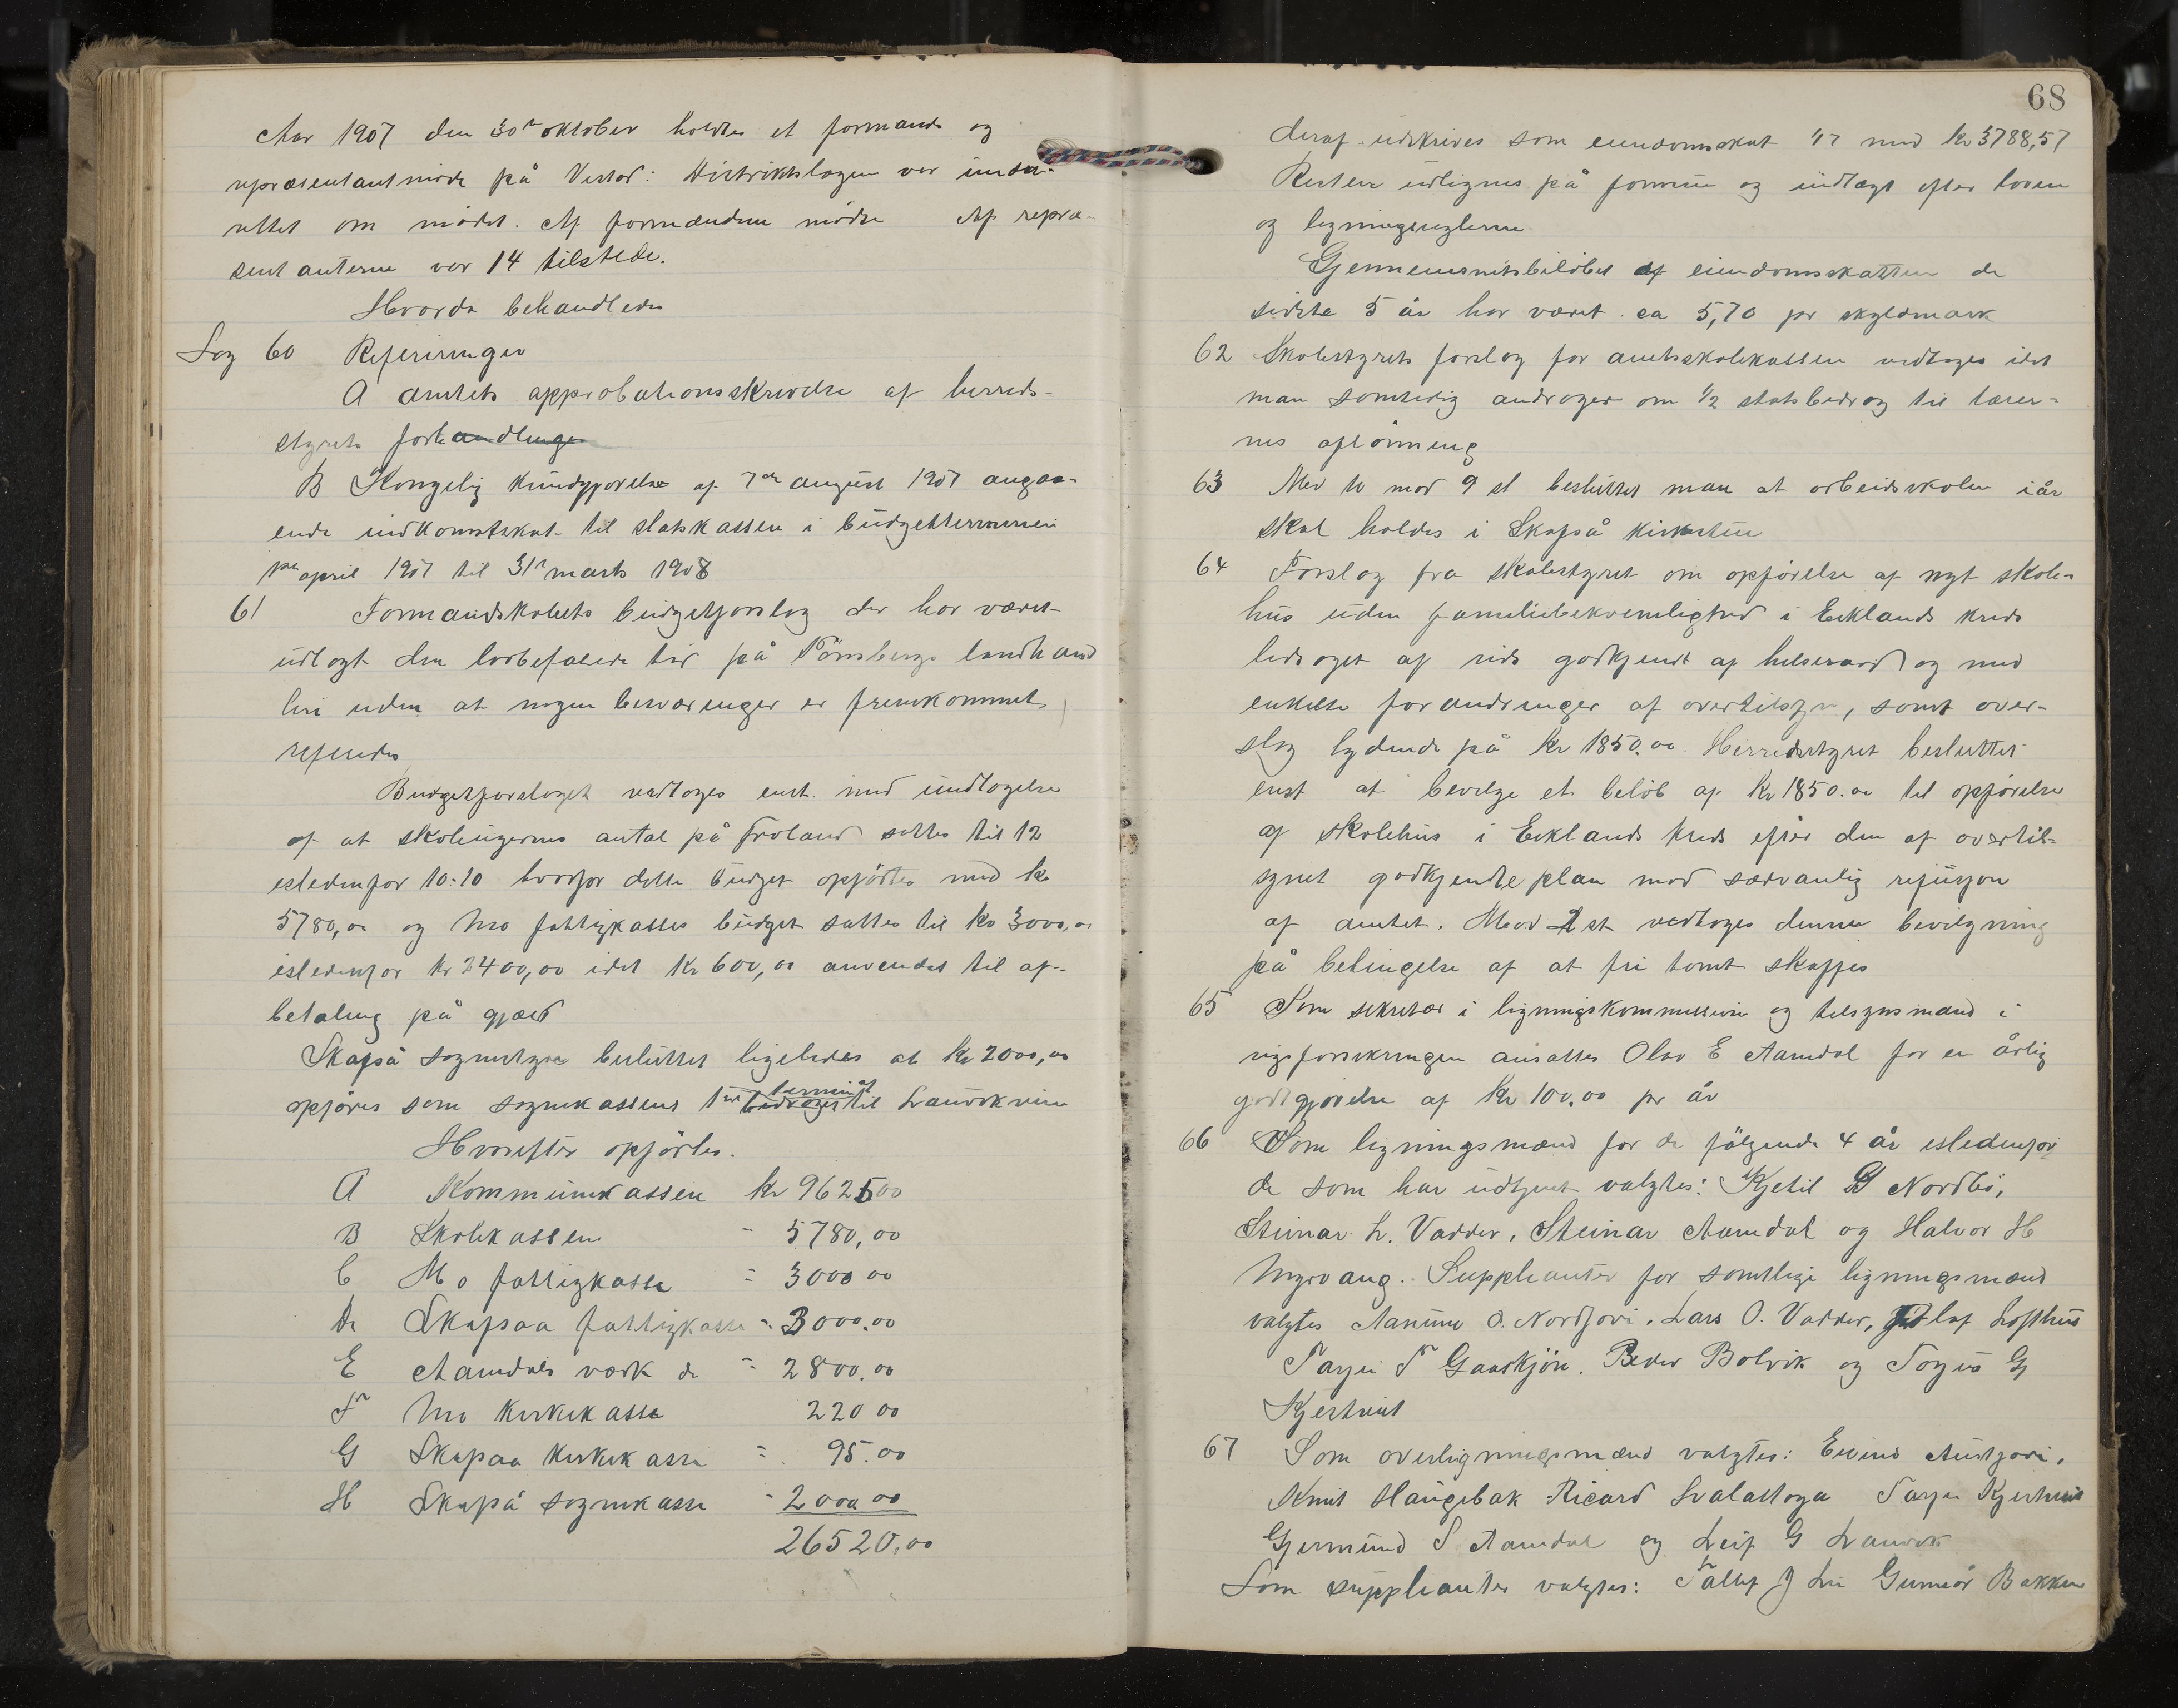 Aar 1907 den 30te oktober holdtes et formands og
repræsentantmöde på Vistad: Distriktslægen var under-
rettet om mödet. Af formændene mödte Af repræ-
sentanterne var 14 tilstede.
Hvorda behandledes
Sag 60 Refereringer
A amtets approbationsskrivelse af herreds-
styrets forhandlinger
B Kongelig kundgjørelse af 7de august 1907 angaa-
ende indkomstskat til statskassen i budgetterminen
1ste april 1907 til 31te marts 1908
61 Formandskabets budgetforslag der har været
udlagt den lovbefalede tid på Tönsbergs landhand
leri uden at nogen besværinger er fremkommet
refereredes
Budgetforslaget vedtoges enst. med undtagelse
af at skoleugernes antal på Froland sattes til 12
istedenfor 10:10 hvorfor dette budget opførtes med kr
5780,00 og Mo fattigkasses budget sattes til kr 3000,00
istedenfor kr 2400,00 idet kr 600,00 anvendes til af-
betaling på gjæld
Skafså sognestyre besluttet ligeledes at kr 2000,00
opføres som sognekassens 1ste termin af bidraget til Lauvikveien
Hvorefter opförtes.
A Kommunekassen kr 9625 00
B Skolekassen - 5780,00
C Mo fattigkasse - 3000 00
D Skafsaa fattigkasse - 3000.00
E Aamdals værk do - 2800.00
F Mo kirkekasse 220 00
G Skafsaa kirkekasse - 95.00
H Skafså sognekasse - 2000 00
26520.00
68
deraf udskrives som eiendomsskat 1/7 med kr 3788,57
Resten udlignes på formue og indtægt efter loven
og ligningsreglerne
Gjennemsnitsbelöbet af eiendomsskatten de
sidste 5 år har været ca 5,70 pr skyldmark
62 Skolestyrets forslag for amtsskolekassen vedtoges idet
man samtidig andrager om 1/2 statsbidrag til lærer-
nes aflönning
63 Med 10 mod 9 st besluttet man at arbeidsskolen iår
skal holdes i Skafså kirkestue
64 Forslag fra skolestyret om opförelse af nyt skole-
hus uden familiebekvemlighed i Eiklands kreds
ledsaget af rids godkjendt af helseraad og med
enkelte forandringer af overtilsyn, samt over-
slag lydende på kr 1850.00. Herredsstyret besluttet
enst at bevilge et belöb af kr 1850.00 til opförelse
af skolehus i Eiklands kreds efter den af overtil-
synet godkjendte plan mod sædvanlig refusjon
af amtet. Mod 2 st vedtoges denne bevilgning
på betingelse af at fri tomt skaffes
65 Som sekretær i ligningskommissionen og tilsynsmand i
sygeforsikringen ansattes Olav E Aamdal for en årlig
godtgjørelse af kr 100.00 pr år
66 Som ligningsmænd for de fölgende 4 år istedenfor
de som har udtjent valgtes: Kjetil G Nordbö,
Steinar L. Vadder, Steinar Aamdal og Halvor H
Myrvang. Suppleanter for samtlige ligningsmænd
valgtes Aanund O. Nordjore. Lars O. Vadder, Olaf Lofthus
Tarjei T Gaaskjön. Peder Bolvik og Torjus G
Kjertveit
67 Som overligningsmænd valgtes: Eivind Austjore.
Knut Haugebak Ricard Svalastoga Tarjei Kjertveit
Gjermund S Aamdal og Leif G Lauvik
Som suppleanter valgtes: Tallef J Lie Gunnar Bakken